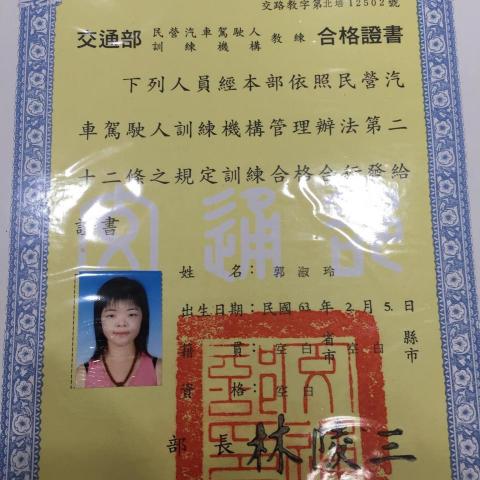 交路教字第北培12502號
交通部 民營汽車駕駛人訓練機構 教練 合格證書
下列人員經本部依照民營汽
車駕駛人訓練機構管理辦法第二
十二條之規定訓練合格合行發給
證書
姓名：郭淑玲
出生日期：民國63年2月5日
籍貫：空白省市空白縣市
資格：空白
部長 林陵三
交通部